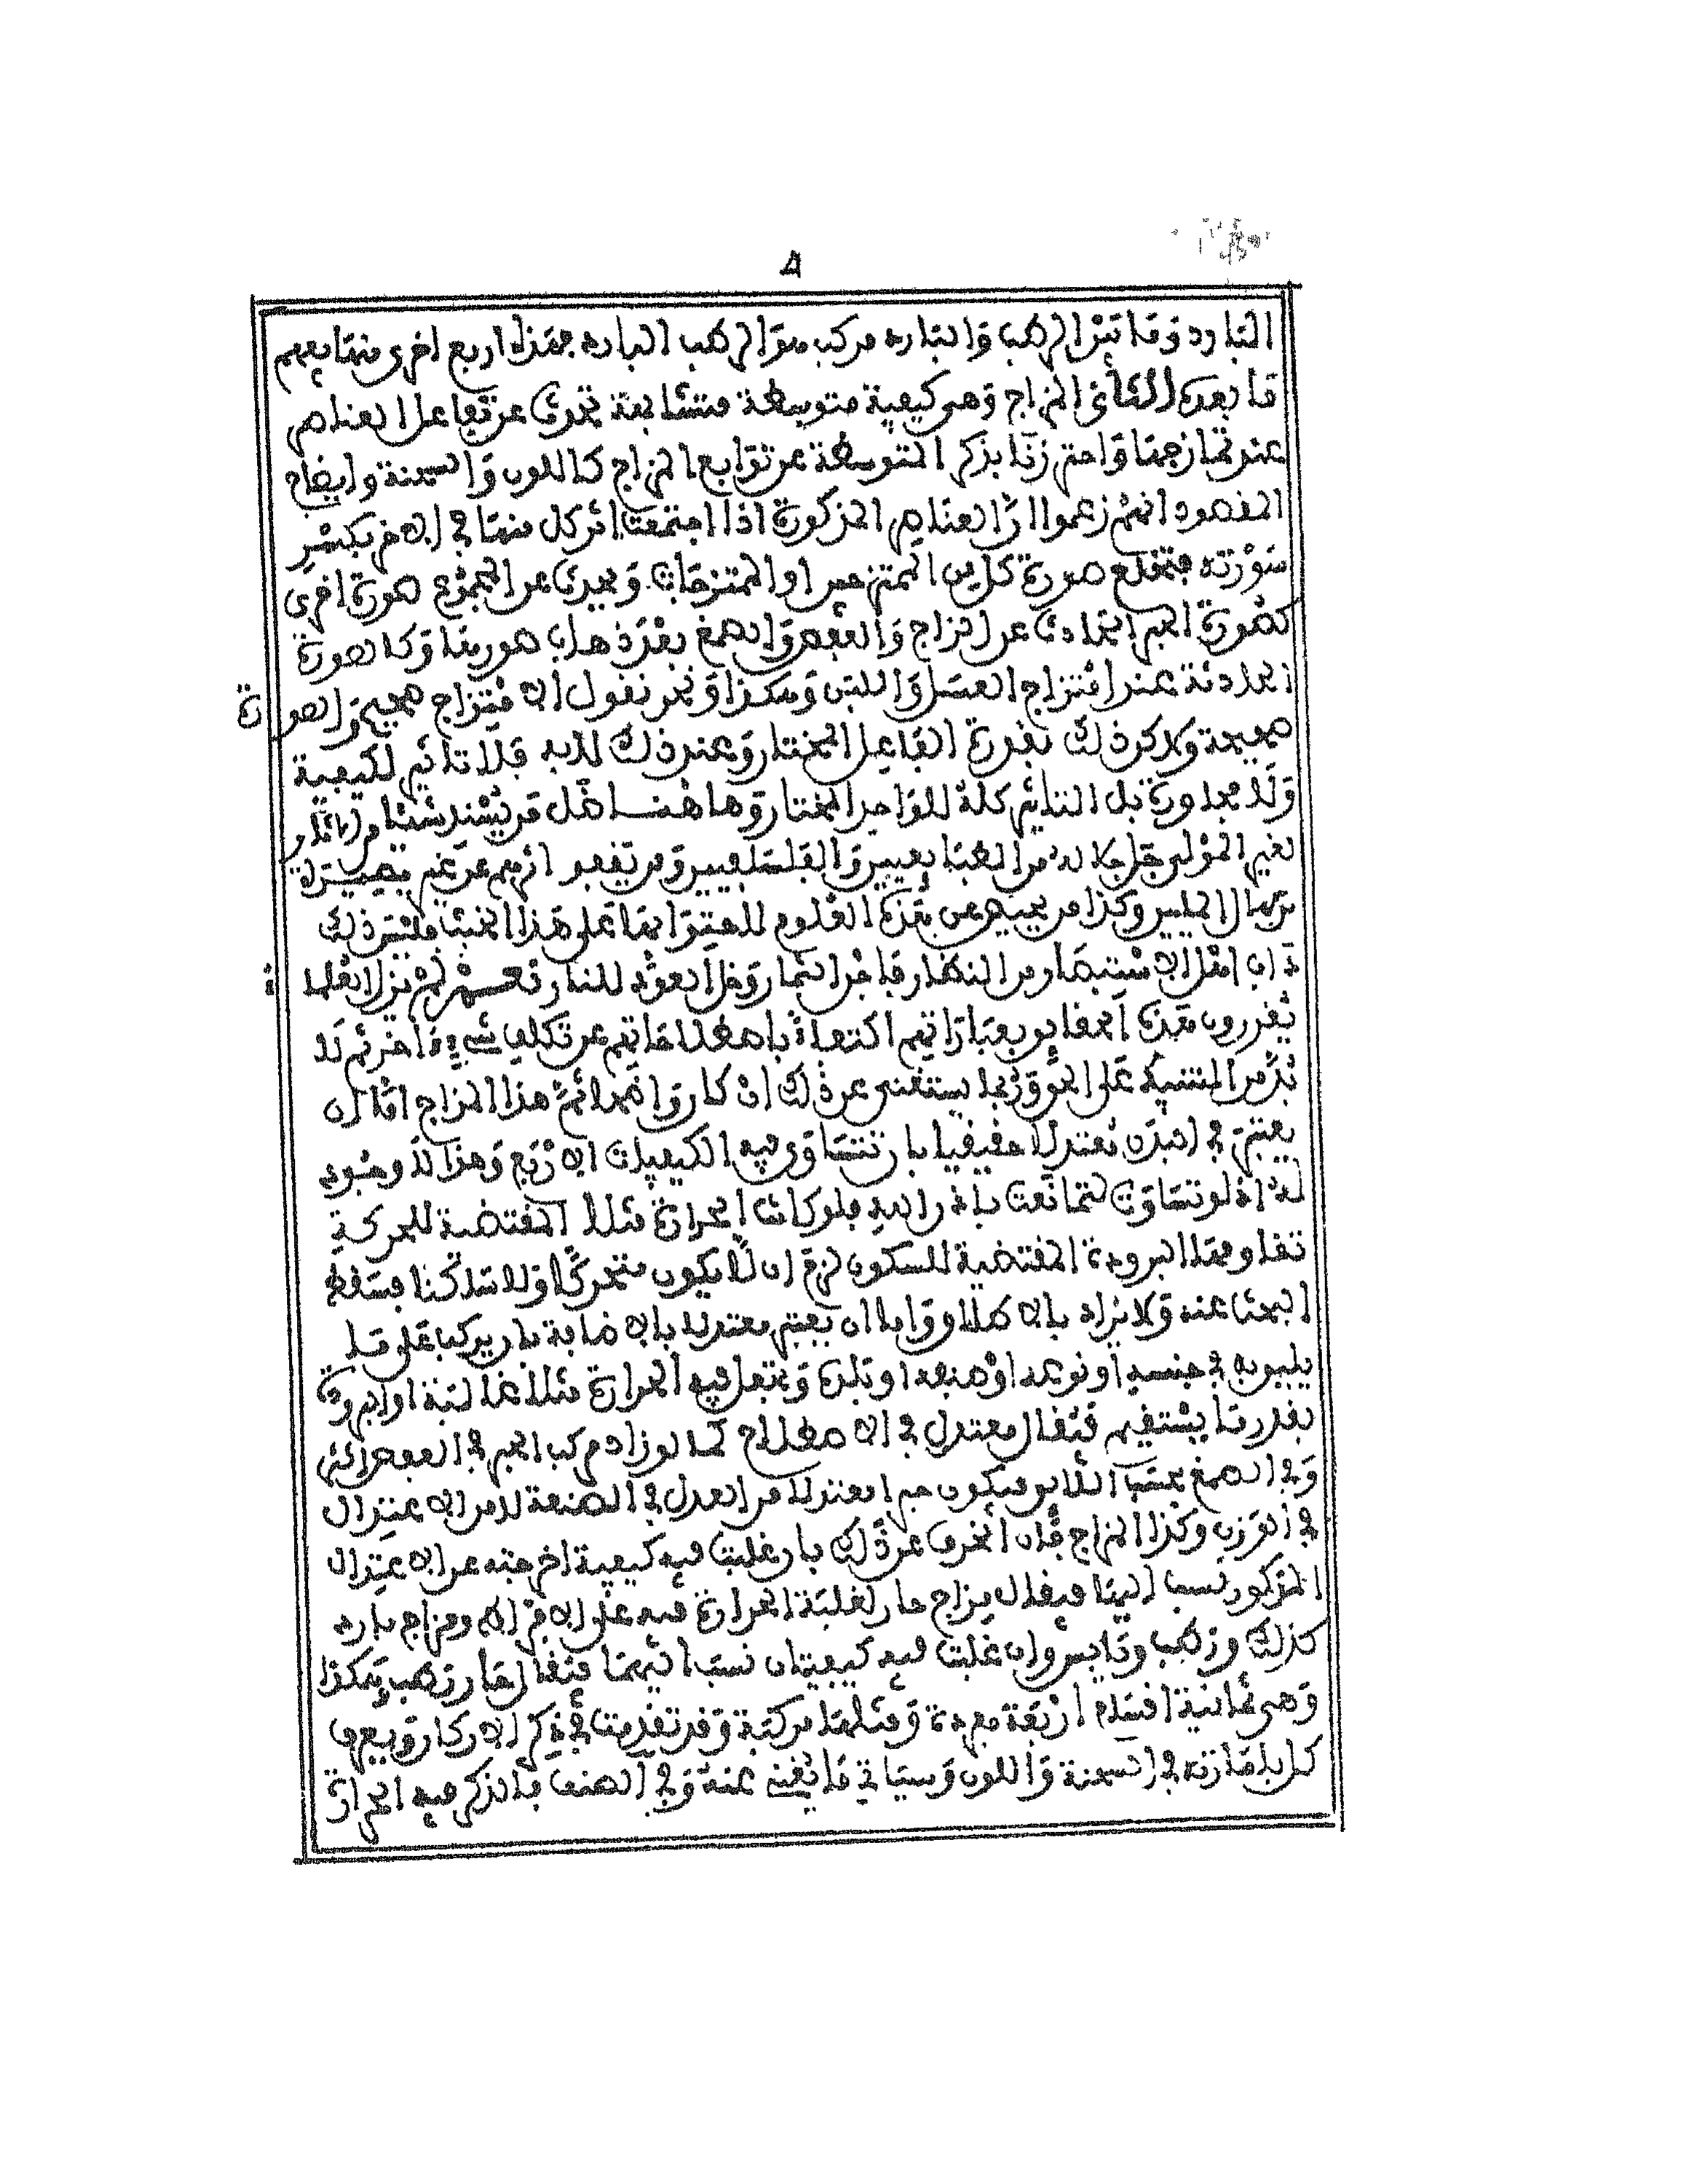 ٨
البارد وما بين الرطب والبارد مركب هو الرطب البارد فهذه اربع اخرى منها يعهم
ما بعده الثاني المزاج وهي كيفية متوسطة متشابهة تحدث عن تفاعل العناصر
عند تمازجها واحترزنا بذكر المتوسطة عن توابع المزاج كاللون والسحنة وايضاح
المقصود انهم زعموا ان العناصر المذكورة اذا اجتمعت اثر كل منها في الاخر بكسر
سورته فتخلع صورة كل من الممتزجين او الممتزجات ويحدث عن المجموع صورة اخرى
كصورة الحبر الحادث عن الزاج والعفص والصمغ بعد ذهاب صورها وكالصورة
الحادثة عند امتزاج العسل واللبن وهكذا ونحن نقول الامتزاج صحيح والصورة
صحيحة ولاكن ذلك بقدرة الفاعل المختار وعند ذلك لا به فلا تاثير لكيفية
ولا مجاورة بل التاثير كله للواحد المختار وها هنا ضل من يسند شيئا من التاثير
لغير المولى جل جلاله من الطبايعيين والفلسفيين ومن يقفو اثرهم من غير بصيرة
من جهال المسلمين وكذا من يحيد عن هذه العلوم لاحتوائها على هذا الخبث فليس ذلك
داب اهل الاستبصار من النظار فاجن الثمار وخل العود للنار نعم لم يزل العلماء
يقررون هذه العقايد بعباراتهم اكتفاء باصطلاحاتهم عن تكلف شيء اخر ثم لا
بد من التنبيه على الحق وربما يستغنى عن ذلك ان كان واضحا ثم هذا المزاج اما ان
يعتبر في البدن معتدلا حقيقيا بان تتساوى فيه الكيفيات الاربع وهذا لا وجود
له اذ لو تساوت لتمانعت باذن الله فلو كانت الحرارة مثلا المقتضية للحركة
تقاومها البرودة المقتضية للسكون لزم ان لا يكون متحركا ولا ساكنا فسقط
البحث عنه ولا يراد بالاطلاق واما ان يعتبر معتدلا بالاضافة بان يركب على ما
يليق به في جنسه او نوعه او صنفه او بلده وتجعل فيه الحرارة مثلا غالبة او البرودة
بقدر ما يستقيم فيقال معتدل في الاصطلاح كما لو زاد مركب الحبر في العفص اكثر
وفي الصمغ بحسب اللايق فيكون حبرا معتدلا من العدل في الصنعة لا من الاعتدال
في الوزن وكذا المزاج فان انحرف عن ذلك بان غلبت فيه كيفية اخرجته عن الاعتدال
المذكور نسب اليها فيقال مزاج حار لغلبة الحرارة فيه على الاقران ومزاج بارد
كذلك ورطب ويابس وان غلبت فيه كيفيتان نسب اليهما فيقال حار رطب وهكذا
وهي ثمانية اقسام اربعة مفردة ومثلها مركبة وقد تقدمت في ذكر الاركان ويعرف
كل بامارته في السحنة واللون وسياتي ما يغني عنه وفي الصنف فالذكر فيه الحرارة